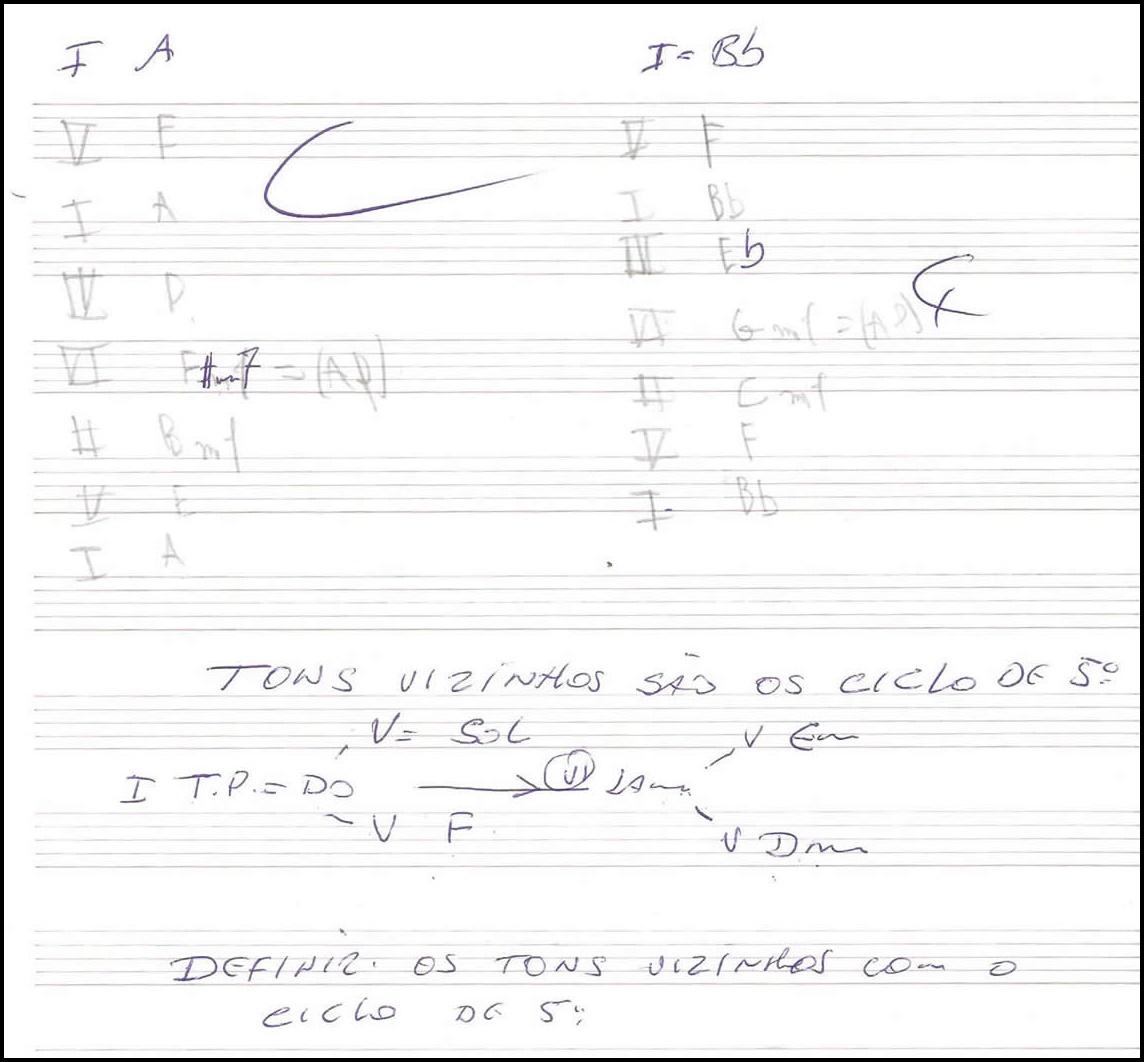 I A
V E
I A
IV D
VI F#m7 = (AP)
II Bm7
V E
I A
I = Bb
V F
I Bb
III Eb
VI Gm7 = (AP)
II Cm7
V F
I Bb
TONS VIZINHOS SÃO OS CICLO DE 5º
V = SOL
V Em
I T.P. = DO → VI LAm
V F
V Dm
DEFINIR OS TONS VIZINHOS COM O
CICLO DE 5º